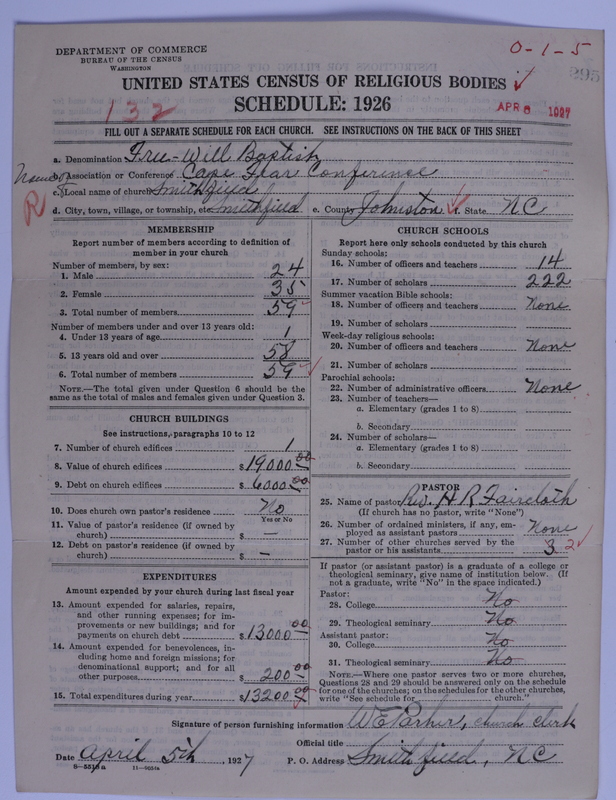 DEPARTMENT OF COMMERCE
BUREAU OF THE CENSUS
WASHINGTON
0-1-5
295
UNITED STATES CENSUS OF RELIGIOUS BODIES
SCHEDULE: 1926
132
APR 6 1927
FILL OUT A SEPARATE SCHEDULE FOR EACH CHURCH. SEE INSTRUCTIONS ON THE BACK OF THIS SHEET
a. Denomination Free-Will Baptist
b. Association or Conference Cape Fear Conference
c. Local name of church Smithfield
R
d. City, town, village, or township, etc. Smithfield e. County Johnston f. State NC
MEMBERSHIP
Report number of members according to definition of
member in your church
Number of members, by sex:
1. Male 24
2. Female 35
3. Total number of members 59
Number of members under and over 13 years old:
4. Under 13 years of age 1
5. 13 years old and over 58
6. Total number of members 59
NOTE.—The total given under Question 6 should be
the same as the total of males and females given under Question 3.
CHURCH BUILDINGS
See instructions, paragraphs 10 to 12
7. Number of church edifices 1
8. Value of church edifices $19000.00
9. Debt on church edifices $6000.00
10. Does church own pastor's residence No
Yes or No
11. Value of pastor's residence (if owned by
church) $ —
12. Debt on pastor's residence (if owned by
church) $ —
EXPENDITURES
Amount expended by your church during last fiscal year
13. Amount expended for salaries, repairs,
and other running expenses; for im-
provements or new buildings; and for
payments on church debt $13000.00
14. Amount expended for benevolences, in-
cluding home and foreign missions; for
denominational support; and for all
other purposes $200.00
15. Total expenditures during year $13200.00
CHURCH SCHOOLS
Report here only schools conducted by this church
Sunday schools:
16. Number of officers and teachers 14
17. Number of scholars 222
Summer vacation Bible schools:
18. Number of officers and teachers None
19. Number of scholars
Week-day religious schools:
20. Number of officers and teachers None
21. Number of scholars
Parochial schools:
22. Number of administrative officers None
23. Number of teachers—
a. Elementary (grades 1 to 8)
b. Secondary
24. Number of scholars—
a. Elementary (grades 1 to 8)
b. Secondary
PASTOR
25. Name of pastor Rev. H R Faircloth
(If church has no pastor, write "None")
26. Number of ordained ministers, if any, em-
ployed as assistant pastors None
27. Number of other churches served by the
pastor or his assistants 3 2
If pastor (or assistant pastor) is a graduate of a college or
theological seminary, give name of institution below. (If
not a graduate, write "No" in the space indicated.)
Pastor:
28. College No
29. Theological seminary No
Assistant pastor:
30. College No
31. Theological seminary No
NOTE.—Where one pastor serves two or more churches,
Questions 28 and 29 should be answered only on the schedule
for one of the churches; on the schedules for the other churches,
write "See schedule for church.
Signature of person furnishing information church clerk
Official title
Date April 5th, 1927 P. O. Address Smithfield, NC